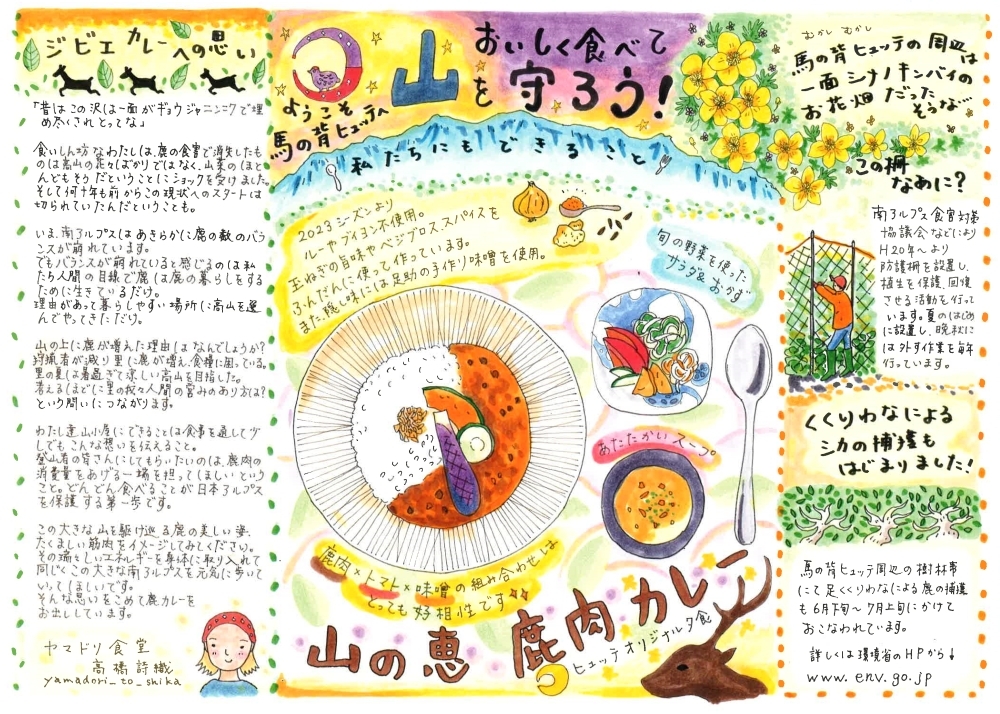 ジビエカレーへの思い
「昔はこの沢は一面がギョウジャニンニクで埋
め尽くされとってな」
食いしん坊なわたしは、鹿の食害で消失したも
のは高山の花々ばかりではなく、山菜のほと
んどもそうだということにショックを受けました。
そして何十年も前からこの現状へのスタートは
切られていたんだということも。
いま、南アルプスはあきらかに鹿の数のバラ
ンスが崩れています。
でもバランスが崩れていると感じるのは私
たち人間の目線で鹿は鹿の暮らしをする
ために生きているだけ。
理由があって暮らしやすい場所に高山を選
んでやってきただけ。
山の上に鹿が増えた理由はなんでしょうか?
狩猟者が減り里に鹿が増え、食糧に困っている。
里の夏は暑過ぎて涼しい高山を目指した。
答えるほどに里の枚々人間の営みのあり方は?
という問いにつながります。
わたし達山小屋にできることは食事を通して少
しでもこんな想いを伝えること。
登山者の皆さんにしてもらいたいのは、鹿肉の
消費量をあげる一場を担ってほしいという
こと。どんどん食べることが日本アルプス
を保護する第一歩です。
この大きな山を駆け巡る鹿の美しい姿、
たくましい筋肉をイメージしてみてください。
その瑞々しいエネルギーを身体に取り入れて
同じくこの大きな南アルプスを元気に歩いて
いってほしいです。
そんな思いをこめて鹿カレーを
お出ししています。
ヤマドリ食堂
高橋詩織
yamadori_to_shika
ようこそ
馬の背ヒュッテへ
おいしく食べて
山を守ろう!
私たちにもできること
2023シーズンより
ルーやブイヨン不使用。
玉ねぎの旨味やベジブロス、スパイスを
ふんだんに使って作っています。
また隠し味には足助の手作り味噌を使用。
旬の野菜を使った
サラダ&おかず
あたたかいスープ。
鹿肉×トマト×味噌の組み合わせは
とっても好相性です
山の恵 鹿肉カレー
ヒュッテオリジナル夕食
むかし むかし
馬の背ヒュッテの周辺は
一面シナノキンバイの
お花畑だった
そうな…
この柵
なあに?
南アルプス食害対策
協議会などにより
H20年より
防護柵を設置し、
植生を保護、回復
させる活動を行って
います。夏のはじめ
に設置し、晩秋に
は外す作業を毎年
行っています。
くくりわなによる
シカの捕獲も
はじまりました!
馬の背ヒュッテ周辺の樹林帯
にて足くくりわなによる鹿の捕獲
も6月下旬~7月上旬にかけて
おこなわれています。
詳しくは環境省のHPから↓
www.env.go.jp